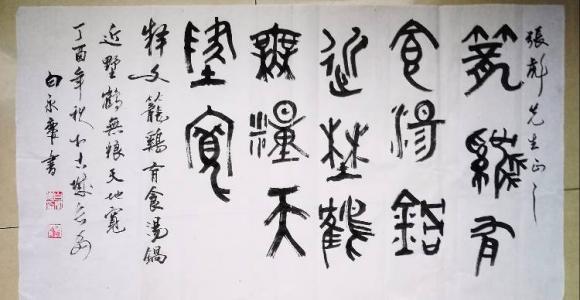 張彪先生正之
籠鷄有
食湯鍋
近埜鶴
無糧天
墬寬
釋文籠鷄有食湯鍋
近墅鶴無粮天地寬
丁酉年秋古城
白永書